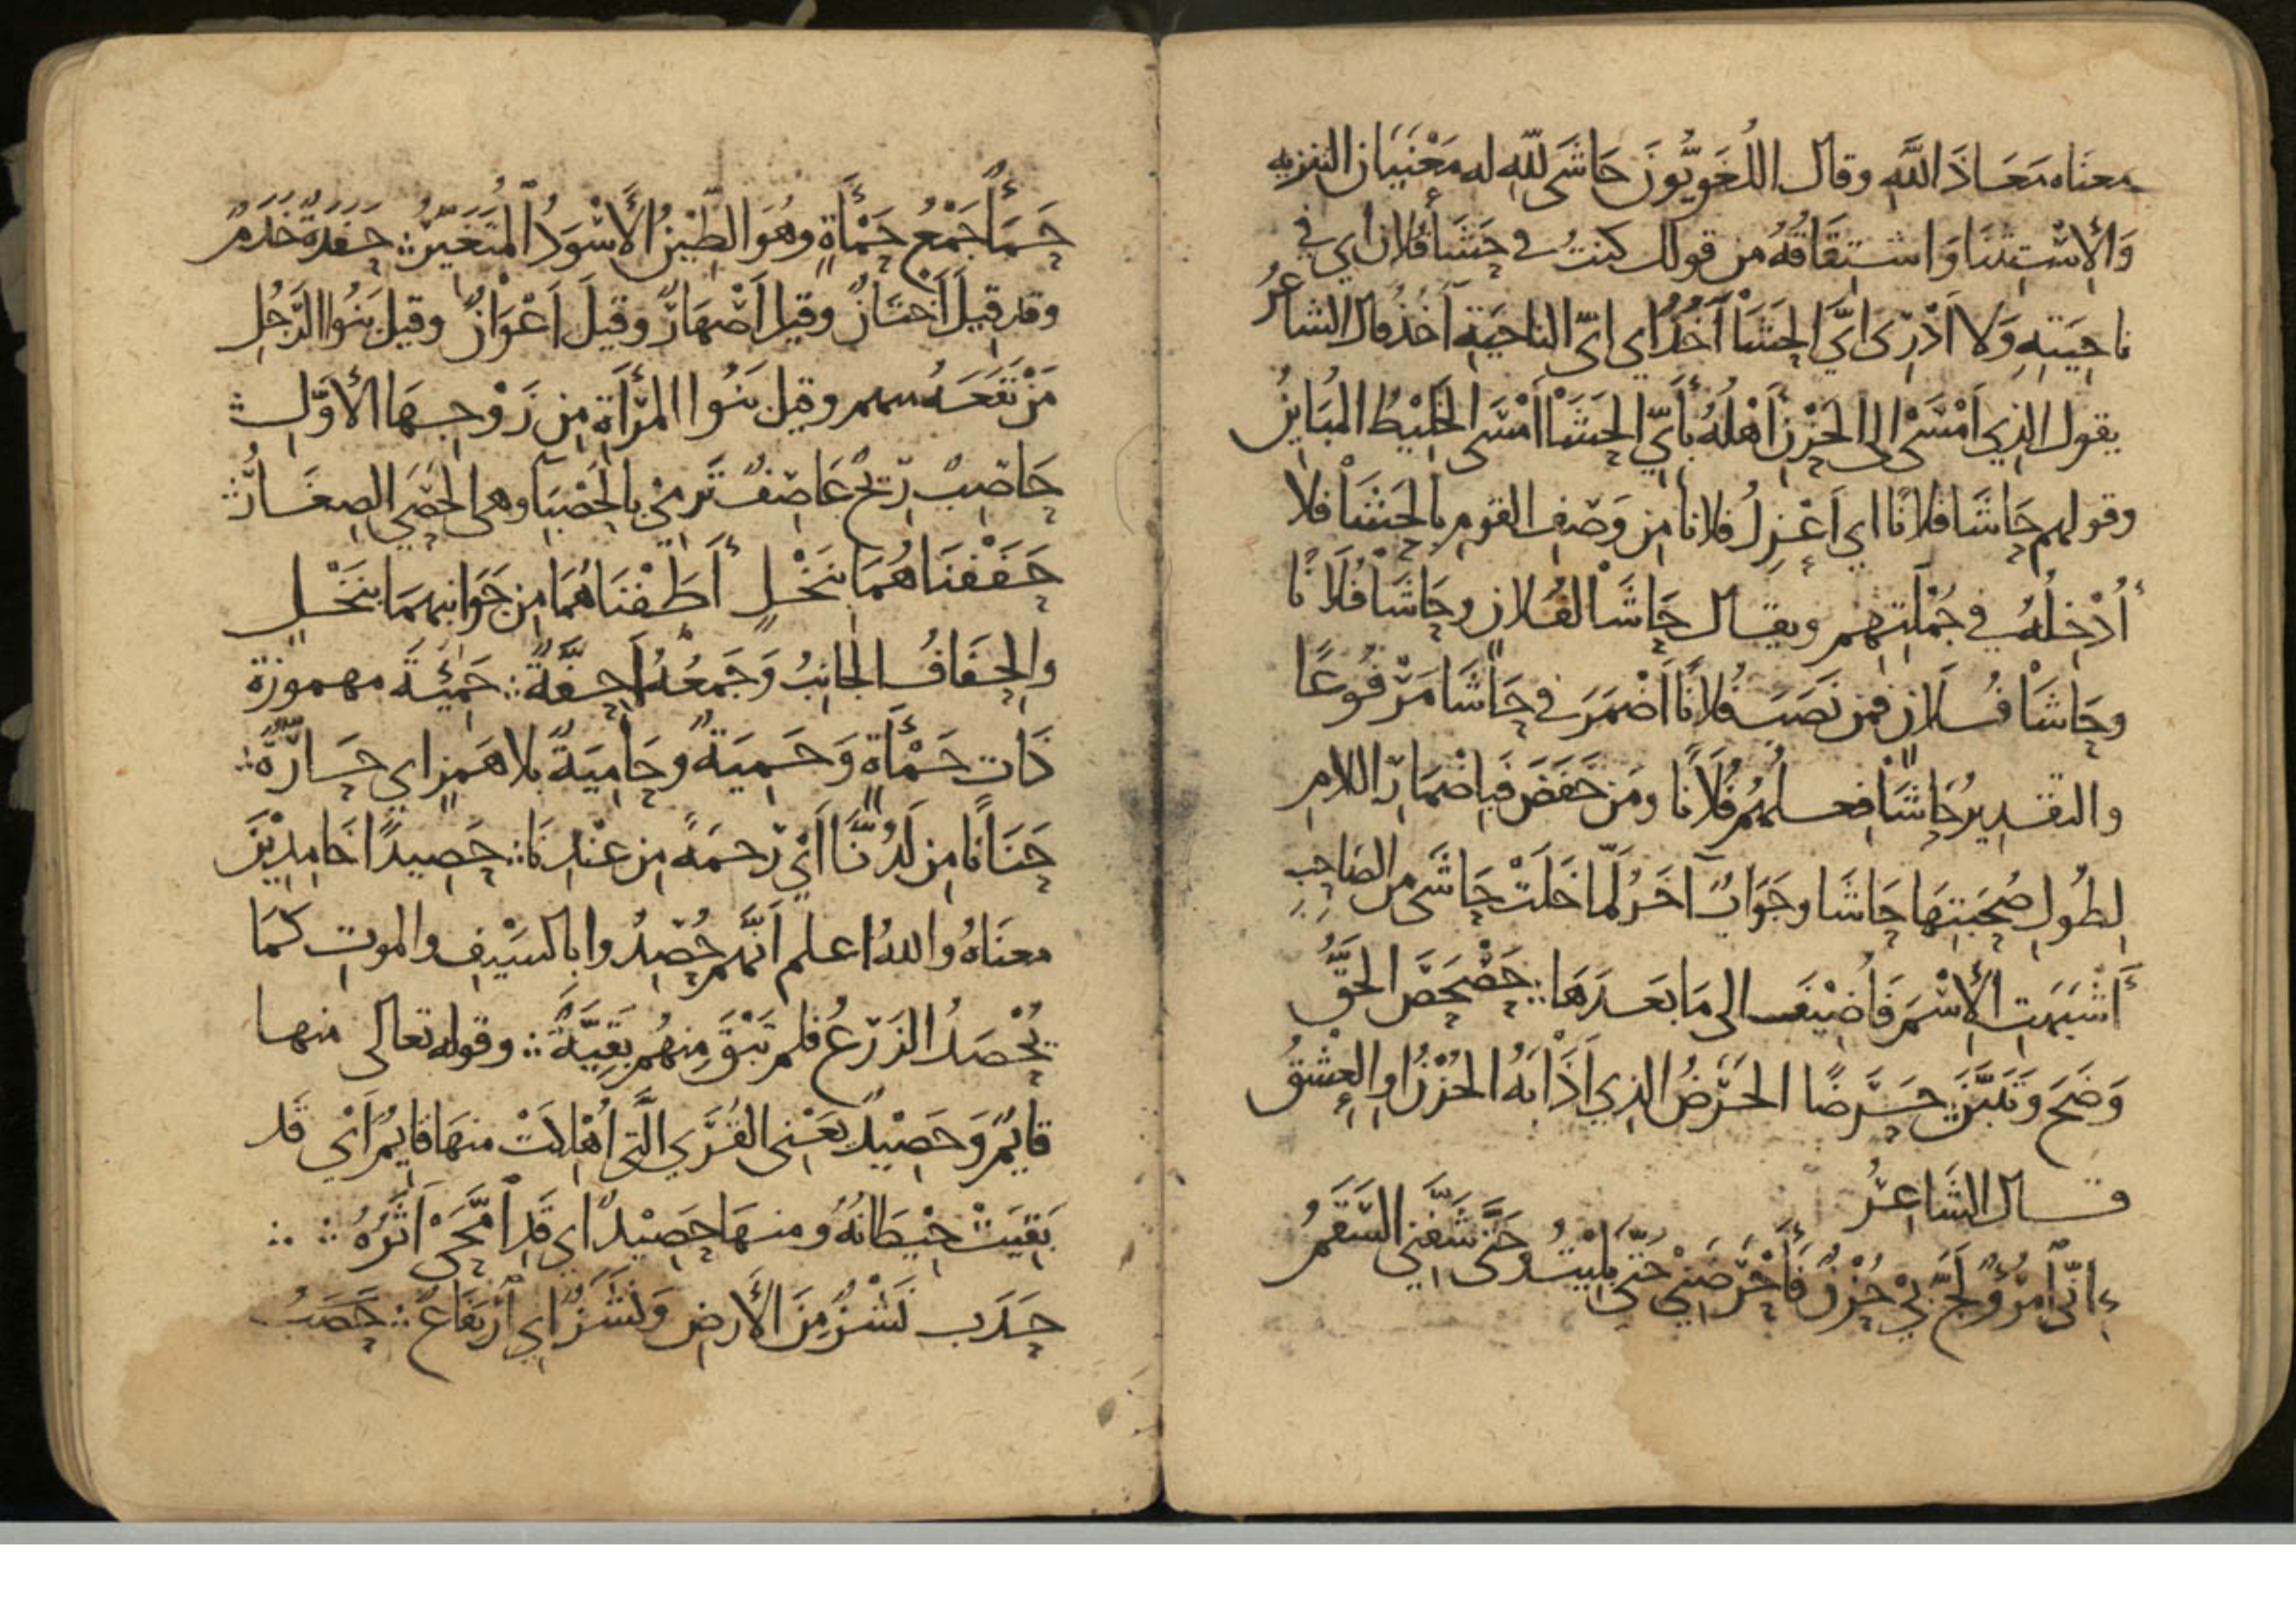 معناه مَعَاذَ اللَّهِ وقال اللُّغَوِيُّونَ حَاشَى لِلَّهِ له مَعْنَيَانِ التنزيه
وَالْاِسْتِثْنَا وَاشْتِقَاقُهُ من قولك كنتُ في حَشَا فُلان أي في
نَاحِيَتِهِ وَلا أَدْرِى أيَّ الحَشَا أَخَذَ اي ايَّ الناحِيَةِ أَخَذَ قال الشاعرُ
يقول الذِي أَمْسَى إلى الحَزْنِ أَهْلُهُ بِأَيِّ الحَشَا أَمْسَى الخَلِيْطُ المُبَايِنُ
وقولهم حَاشَا فلانًا اي أَعْزِلُ فلانًا مِن وَصْفِ القومِ بالحَشَا فلا
أُدْخِلُهُ في جُمْلَتِهِم ويقال حَاشَا لفُلانٍ وحَاشَا فُلَانًا
وحَاشَا فُلانٍ فمن نَصَبَ فُلانًا اَضْمَرَ في حَاشَا مَرْفُوعًا
والتقدِيرُ حَاشَا فِعلُهُم فُلَانًا ومَن خَفَضَ فَبِاِضْمَارِ اللامِ
لِطُولِ صُحْبَتِهَا حَاشَا وجَوَابٌ آخَرُ لَمَّا خَلَتْ حَاشَى مِن الصَّاحِبِ
أَشْبَهَتِ الْاِسْمَ فَأُضِيْفَت الى مَا بَعدَهَا ∴ حَصْحَصَ الحَقُّ
وَضَحَ وَتَبَيَّنَ ∴ حَرَضًا الحَرَضُ الذِي أَذَابَهُ الحُزْنُ اوِ العِشْقُ
قال الشَاعِرُ
إِنِّي امْرُؤٌ لَجَّ بِي حُزْنٌ فَأَحْرَضَنِي حَتَّى بَلِيْتُ وحَتَّى شَفَّنِي السَّقَمُ
حَمَأٌ جَمْعُ حَمْأَةٍ وهُوَ الطِّيْنُ الأَسْوَدُ الْمُتَغَيِّرُ ∴ حَفَدَةٌ خَدَمٌ
وقد قِيلَ أَخْتَانٌ وقيل أَصْهَارٌ وقِيلَ أَعْوَانٌ وقيل بَنُوا الرَّجُلِ
مَنْ نَفَعَهُ منهم وقيل بَنُوا المَرْأَةِ مِن زَوْجِهَا الأَوَّلِ ∴
حَاصِبٌ رِيحٌ عَاصِفٌ تَرمِي بالحَصْبَا وهي الحَصَى الصِغَارُ ∴
حَفَفْنَاهُمَا بِنَخْلٍ أَطَفْنَاهُمَا مِن جَوَانِبِهِمَا بِنَخْلٍ
والحِفَافُ الجَانِبُ وَجَمعُهُ أَحِفَّةٌ ∴ حَمِئَةٌ مهموزة
ذَات حَمْأَةٍ وَحَمِيَةٌ وحَامِيَةٌ بلا هَمزٍ اي حَارَّةٌ ∴
حَنَانًا مِن لَدُنَّا أَيْ رَحمَةً مِن عِنْدِنَا ∴ حَصِيدًا خَامِدِيْنَ
معنَاهُ واللهُ اعلم أَنَّهُم حُصِدُوا بِالسَيْفِ والموتِ كَمَا
يُحْصَدُ الزَرعُ فلم تَبْقَ مِنهُم بَقِيَّةٌ ∴ وقوله تعالى منها
قايِمٌ وَحَصِيْدٌ يَعْنِى القُرَى الَّتِي أُهْلِكَتْ منهَا قايِمٌ أَيْ قَد
بَقِيَتْ حِيْطَانُهُ ومنهَا حَصِيْدٌ اي قَدِ امَّحَى أَثَرُهُ ∴ ∴
حَدَبٍ نَشْزٌ مِنَ الأَرضِ وَنَشَزٌ اي ارْتِفَاعٌ ∴ حَصَبُ